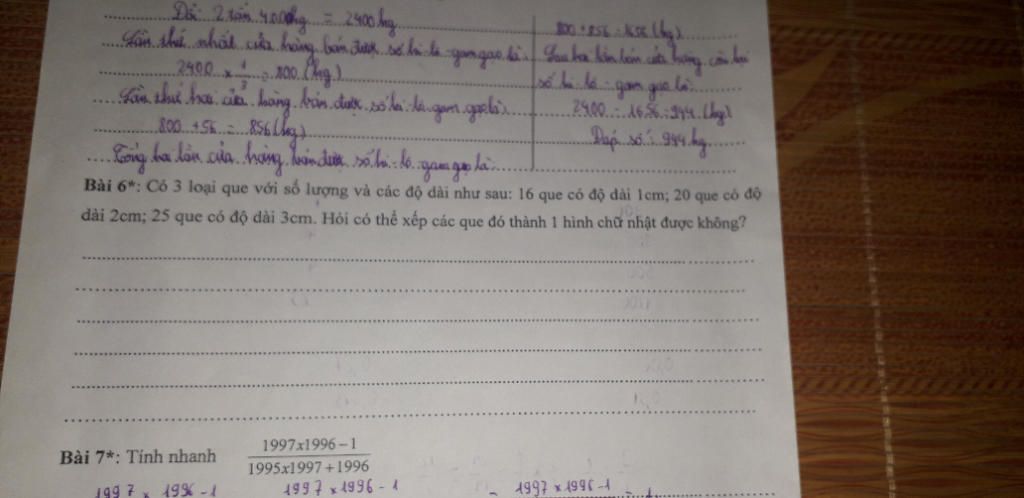 Đổi 2 tấn 400kg = 2400 kg
Lần thứ nhất cửa hàng bán được số ki-lô-gam gạo là:
2400 x 1/3 = 800 (kg)
Lần thứ hai cửa hàng bán được số ki-lô-gam gạo là:
800 + 56 = 856 (kg)
Tổng hai lần cửa hàng bán được số ki-lô-gam gạo là:
800 + 856 = 1656 (kg)
Sau hai lần bán cửa hàng còn lại
số ki-lô-gam gạo là:
2400 - 1656 = 944 (kg)
Đáp số: 944 kg
Bài 6*: Có 3 loại que với số lượng và các độ dài như sau: 16 que có độ dài 1cm; 20 que có độ
dài 2cm; 25 que có độ dài 3cm. Hỏi có thể xếp các que đó thành 1 hình chữ nhật được không?
Bài 7*: Tính nhanh
1997x1996 – 1
1995x1997 + 1996
1997 x 1996 - 1
1997 x 1996 - 1
= 1997 x 1996 - 1 = 1